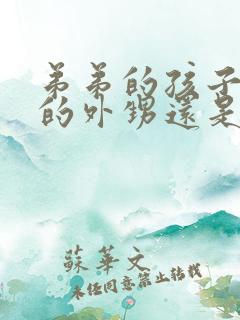 弟弟的孩子
的外甥還是
蘇華文
未经同意禁止转载